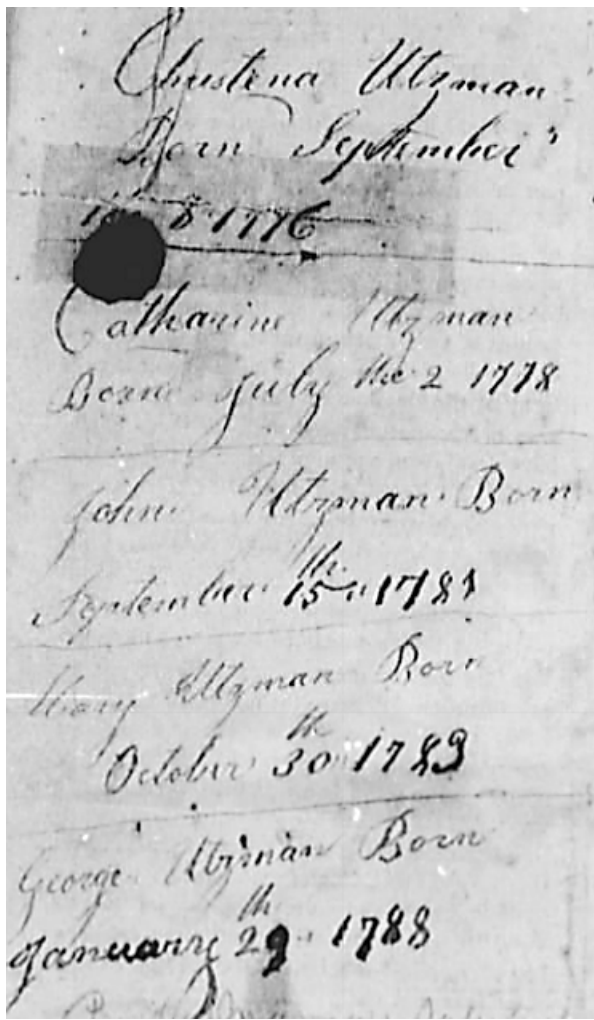 Christena Utzman
Born September
8 1776
Catharine Utzman
Born July the 2 1778
John Utzman Born
September 15th 1781
Mary Utzman Born
October 30th 1783
George Utzman Born
January 29th 1788